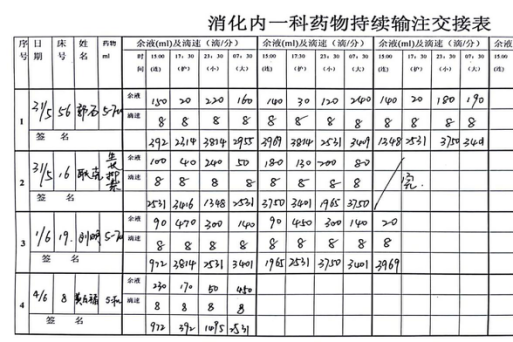 消化内一科药物持续输注交接表
序号 日期 床号 姓名 药物ml 余液(ml)及滴速(滴/分) 余液(ml)及滴速(滴/分) 余液
时间 15:00(连) 17:30(护) 23:30(小) 07:30(大) 15:00(连) 17:30(护) 23:30(小) 07:30(大) 15:00(连) 17:30(护) 23:30(小) 07:30(大) 15:00
1 31/5 56 余液 150 20 220 160 140 30 120 240 140 20 180 190
滴速 8 8 8 8 8 8 8 8 8 8 8 8
签名 392 2314 3814 2955 3969 3814 2531 3409 1348 2531 3750
2 31/5 16 余液 100 40 240 50 180 130 200 80
滴速 8 8 8 8 8 8 8 8
签名 2531 3406 1348 2531 3750 3401 1965 3750
3 1/6 19 余液 90 470 300 140 90 450 300 140 20
滴速 8 8 8 8 8 8 8 8 8
签名 972 3814 2531 3401 1965 2531 3750 3401 3969
4 4/6 8 余液 230 170 50 450
滴速 8 8 8 8
签名 972 392 1495 2531